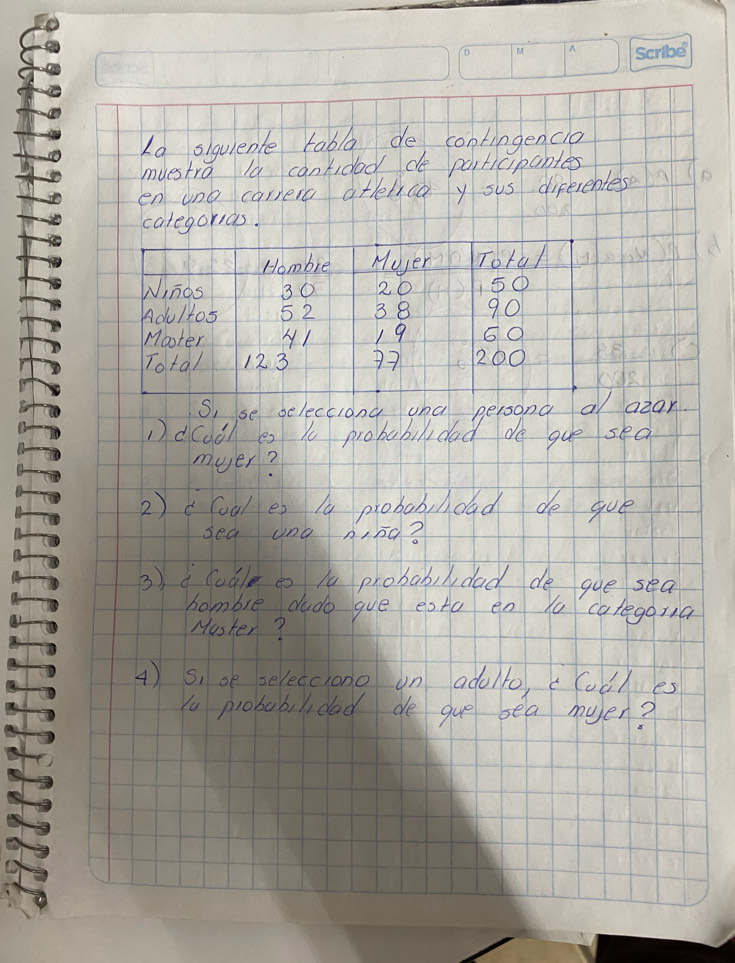 D M A Scribe
La siguiente tabla de contingencia
muestra la cantidad de participantes
en una carrera atletica y sus diferentes
categorias.
Hombre Mujer Total
Niños 30 20 50
Adultos 52 38 90
Master 41 19 60
Total 123 77 200
Si se selecciona una persona al azar.
1) ¿Cuál es la probabilidad de que sea
mujer?
2) ¿Cual es la probabilidad de que
sea una niña?
3) ¿Cuál es la probabilidad de que sea
hombre dado que esta en la categoria
Master?
4) Si se selecciono un adulto, ¿Cuál es
la probabilidad de que sea mujer?